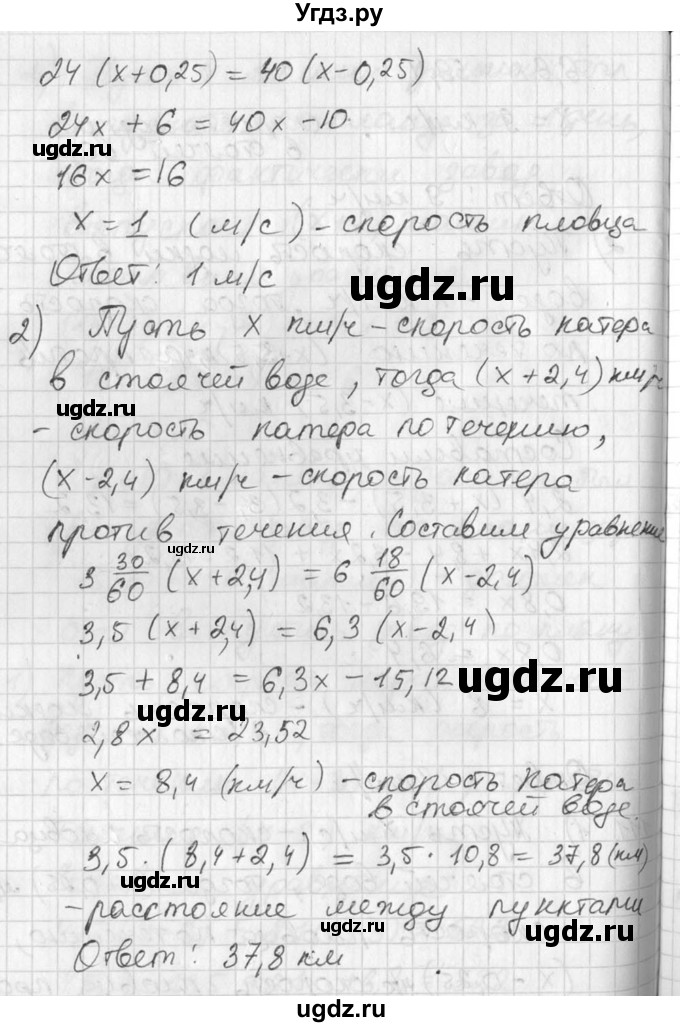 Угдз.ру
24 (x+0,25) = 40 (x-0,25)
24x + 6 = 40x - 10
ugdz.ru
16x = 16
x = 1 (м/с) - скорость пловца
Ответ: 1 м/с
ugdz.ru
2) Пусть x км/ч - скорость катера
в стоячей воде, тогда (x+2,4) км/ч
ugdz.ru
- скорость катера по течению,
(x-2,4) км/ч - скорость катера
против течения. Составим уравнение
ugdz.ru
3 30/60 (x+2,4) = 6 18/60 (x-2,4)
3,5 (x+2,4) = 6,3 (x-2,4)
3,5 + 8,4 = 6,3x - 15,12
ugdz.ru
ugdz.ru
2,8x = 23,52
x = 8,4 (км/ч) - скорость катера
в стоячей воде.
3,5 · (8,4+2,4) = 3,5 · 10,8 = 37,8 (км)
ugdz.ru
- расстояние между пунктами
Ответ: 37,8 км
ugdz.ru
ugdz.ru